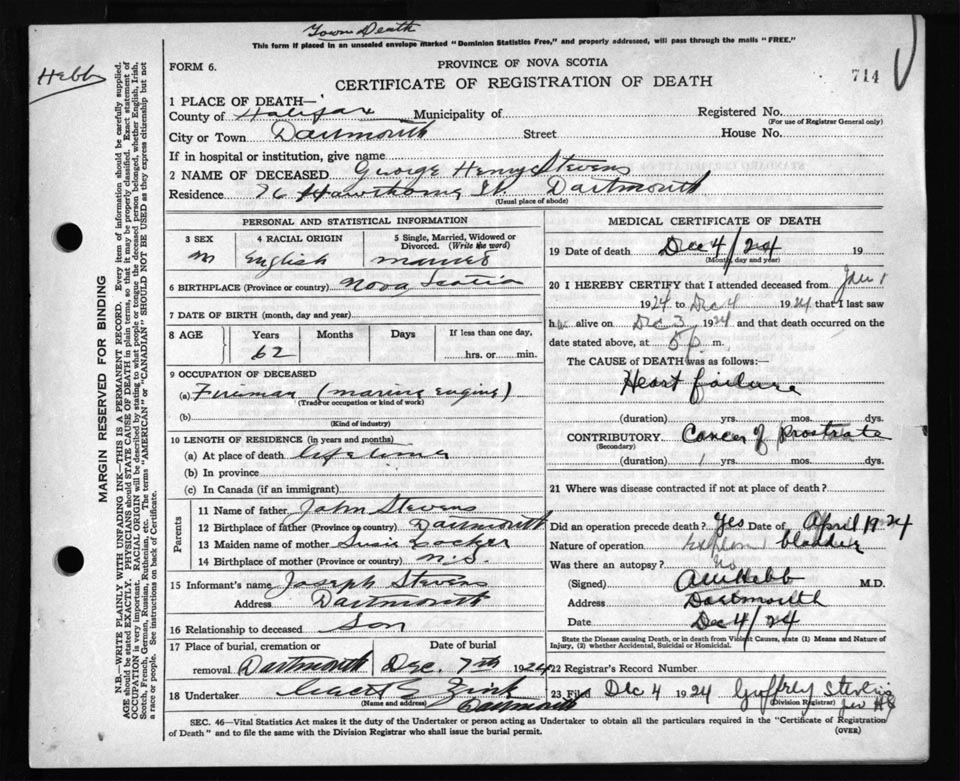 Town Death
This form if placed in an unsealed envelope marked "Dominion Statistics Free," and properly addressed, will pass through the mails "FREE."
Hebb
FORM 6.
PROVINCE OF NOVA SCOTIA
CERTIFICATE OF REGISTRATION OF DEATH
714
1 PLACE OF DEATH—
County of Halifax Municipality of Registered No.
(For use of Registrar General only)
City or Town Dartmouth Street House No.
If in hospital or institution, give name
2 NAME OF DECEASED George Henry Stevens
Residence 76 Hawthorne St. Dartmouth
(Usual place of abode)
PERSONAL AND STATISTICAL INFORMATION
3 SEX 4 RACIAL ORIGIN 5 Single, Married, Widowed or
Divorced. (Write the word)
M English married
6 BIRTHPLACE (Province or country) Nova Scotia
7 DATE OF BIRTH (month, day and year)
8 AGE Years Months Days If less than one day,
62 hrs. or min.
9 OCCUPATION OF DECEASED
(a) Fireman (marine engine)
(Trade or occupation or kind of work)
(b)
(Kind of industry)
10 LENGTH OF RESIDENCE (in years and months)
(a) At place of death lifetime
(b) In province
(c) In Canada (if an immigrant)
Parents
11 Name of father John Stevens
12 Birthplace of father (Province or country) Dartmouth
13 Maiden name of mother Susie
14 Birthplace of mother (Province or country) N.S.
15 Informant's name Joseph Stevens
Address Dartmouth
16 Relationship to deceased Son
17 Place of burial, cremation or Date of burial
removal Dartmouth Dec. 7th 1924
18 Undertaker Zink
(Name and address) Dartmouth
MEDICAL CERTIFICATE OF DEATH
19 Date of death Dec 4/24 19
(Month, day and year)
20 I HEREBY CERTIFY that I attended deceased from Jan 1
1924 to Dec 4 1924 that I last saw
him alive on Dec 3 1924 and that death occurred on the
date stated above, at 8 p m.
The CAUSE of DEATH was as follows:—
Heart failure
(duration) yrs. mos. dys.
CONTRIBUTORY Cancer of Prostrate
(Secondary)
(duration) 1 yrs. mos. dys.
21 Where was disease contracted if not at place of death?
Did an operation precede death? Yes Date of April 1924
Nature of operation bladder
Was there an autopsy? No
(Signed) Hebb M.D.
Address Dartmouth
Date Dec 4/24
State the Disease causing Death, or in death from Violent Causes, state (1) Means and Nature of
Injury, (2) whether Accidental, Suicidal or Homicidal.
22 Registrar's Record Number
23 Filed Dec 4 1924
(Division Registrar)
SEC. 46—Vital Statistics Act makes it the duty of the Undertaker or person acting as Undertaker to obtain all the particulars required in the "Certificate of Registration
of Death" and to file the same with the Division Registrar who shall issue the burial permit.
(OVER)
MARGIN RESERVED FOR BINDING
N.B.—WRITE PLAINLY WITH UNFADING INK—THIS IS A PERMANENT RECORD. Every item of information should be carefully supplied.
AGE should be stated EXACTLY. PHYSICIANS should STATE CAUSE OF DEATH in plain terms, so that it may be properly classified. Exact statement of
OCCUPATION is very important. RACIAL ORIGIN will be described by stating to what people or tongue the deceased person belonged, whether English, Irish,
Scotch, French, German, Russian, Ruthenian, etc. The terms "AMERICAN" or "CANADIAN" SHOULD NOT BE USED as they express citizenship but not
a race or people. See instructions on back of Certificate.